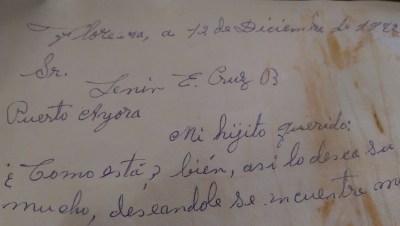 Floreana, a 12 de Diciembre de 1982
Sr.
Lenin E. Cruz B
Puerto Ayora
Mi hijito querido:
¿Como está,? bién, asi lo desea su
mucho, deseandole se encuentre